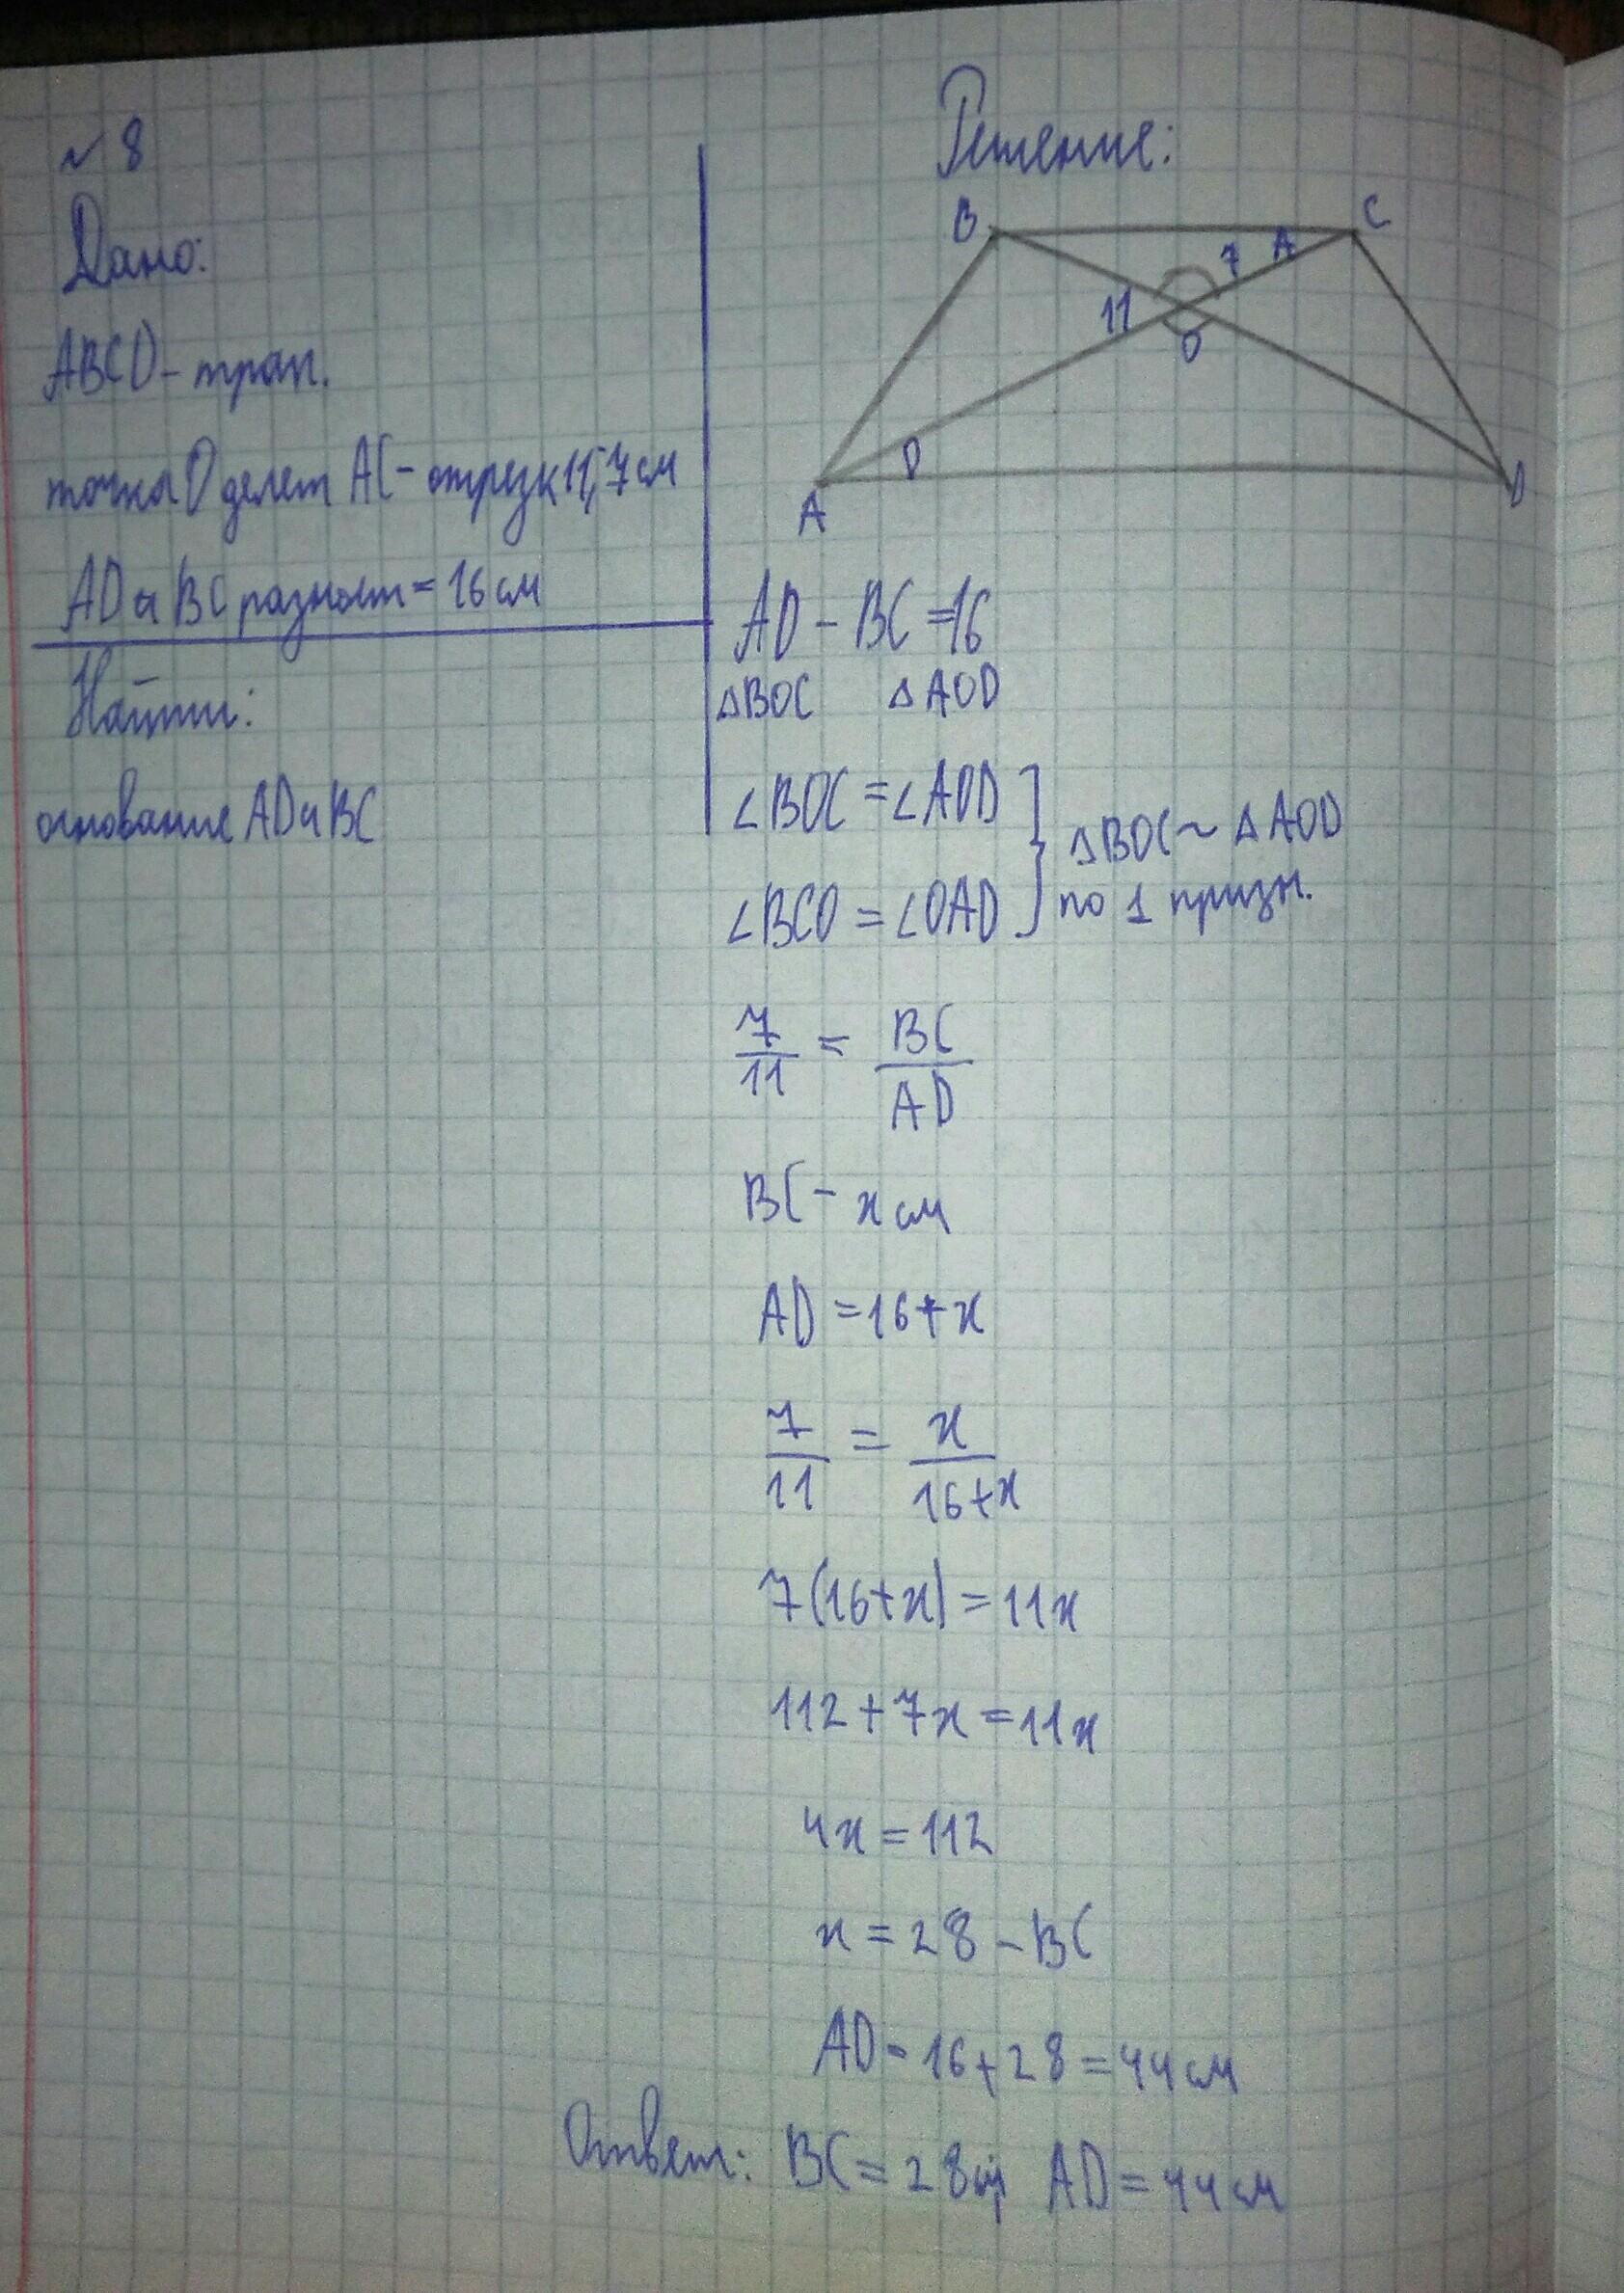 №8
Дано:
ABCD - трап.
точка O делет AC - отрезк 11, 7 см
AD и BC разност = 16 см
Найти:
основание AD и BC
Решение:
B C
7 A
11
O
D
A D
AD - BC = 16
△BOC △AOD
∠BOC = ∠AOD
∠BCO = ∠OAD
} △BOC ~ △AOD
по 1 призн.
7/11 = BC/AD
BC - x см
AD = 16 + x
7/11 = x/16+x
7(16+x) = 11x
112 + 7x = 11x
4x = 112
x = 28 - BC
AD - 16 + 28 = 44 см
Ответ: BC = 28 см; AD = 44 см